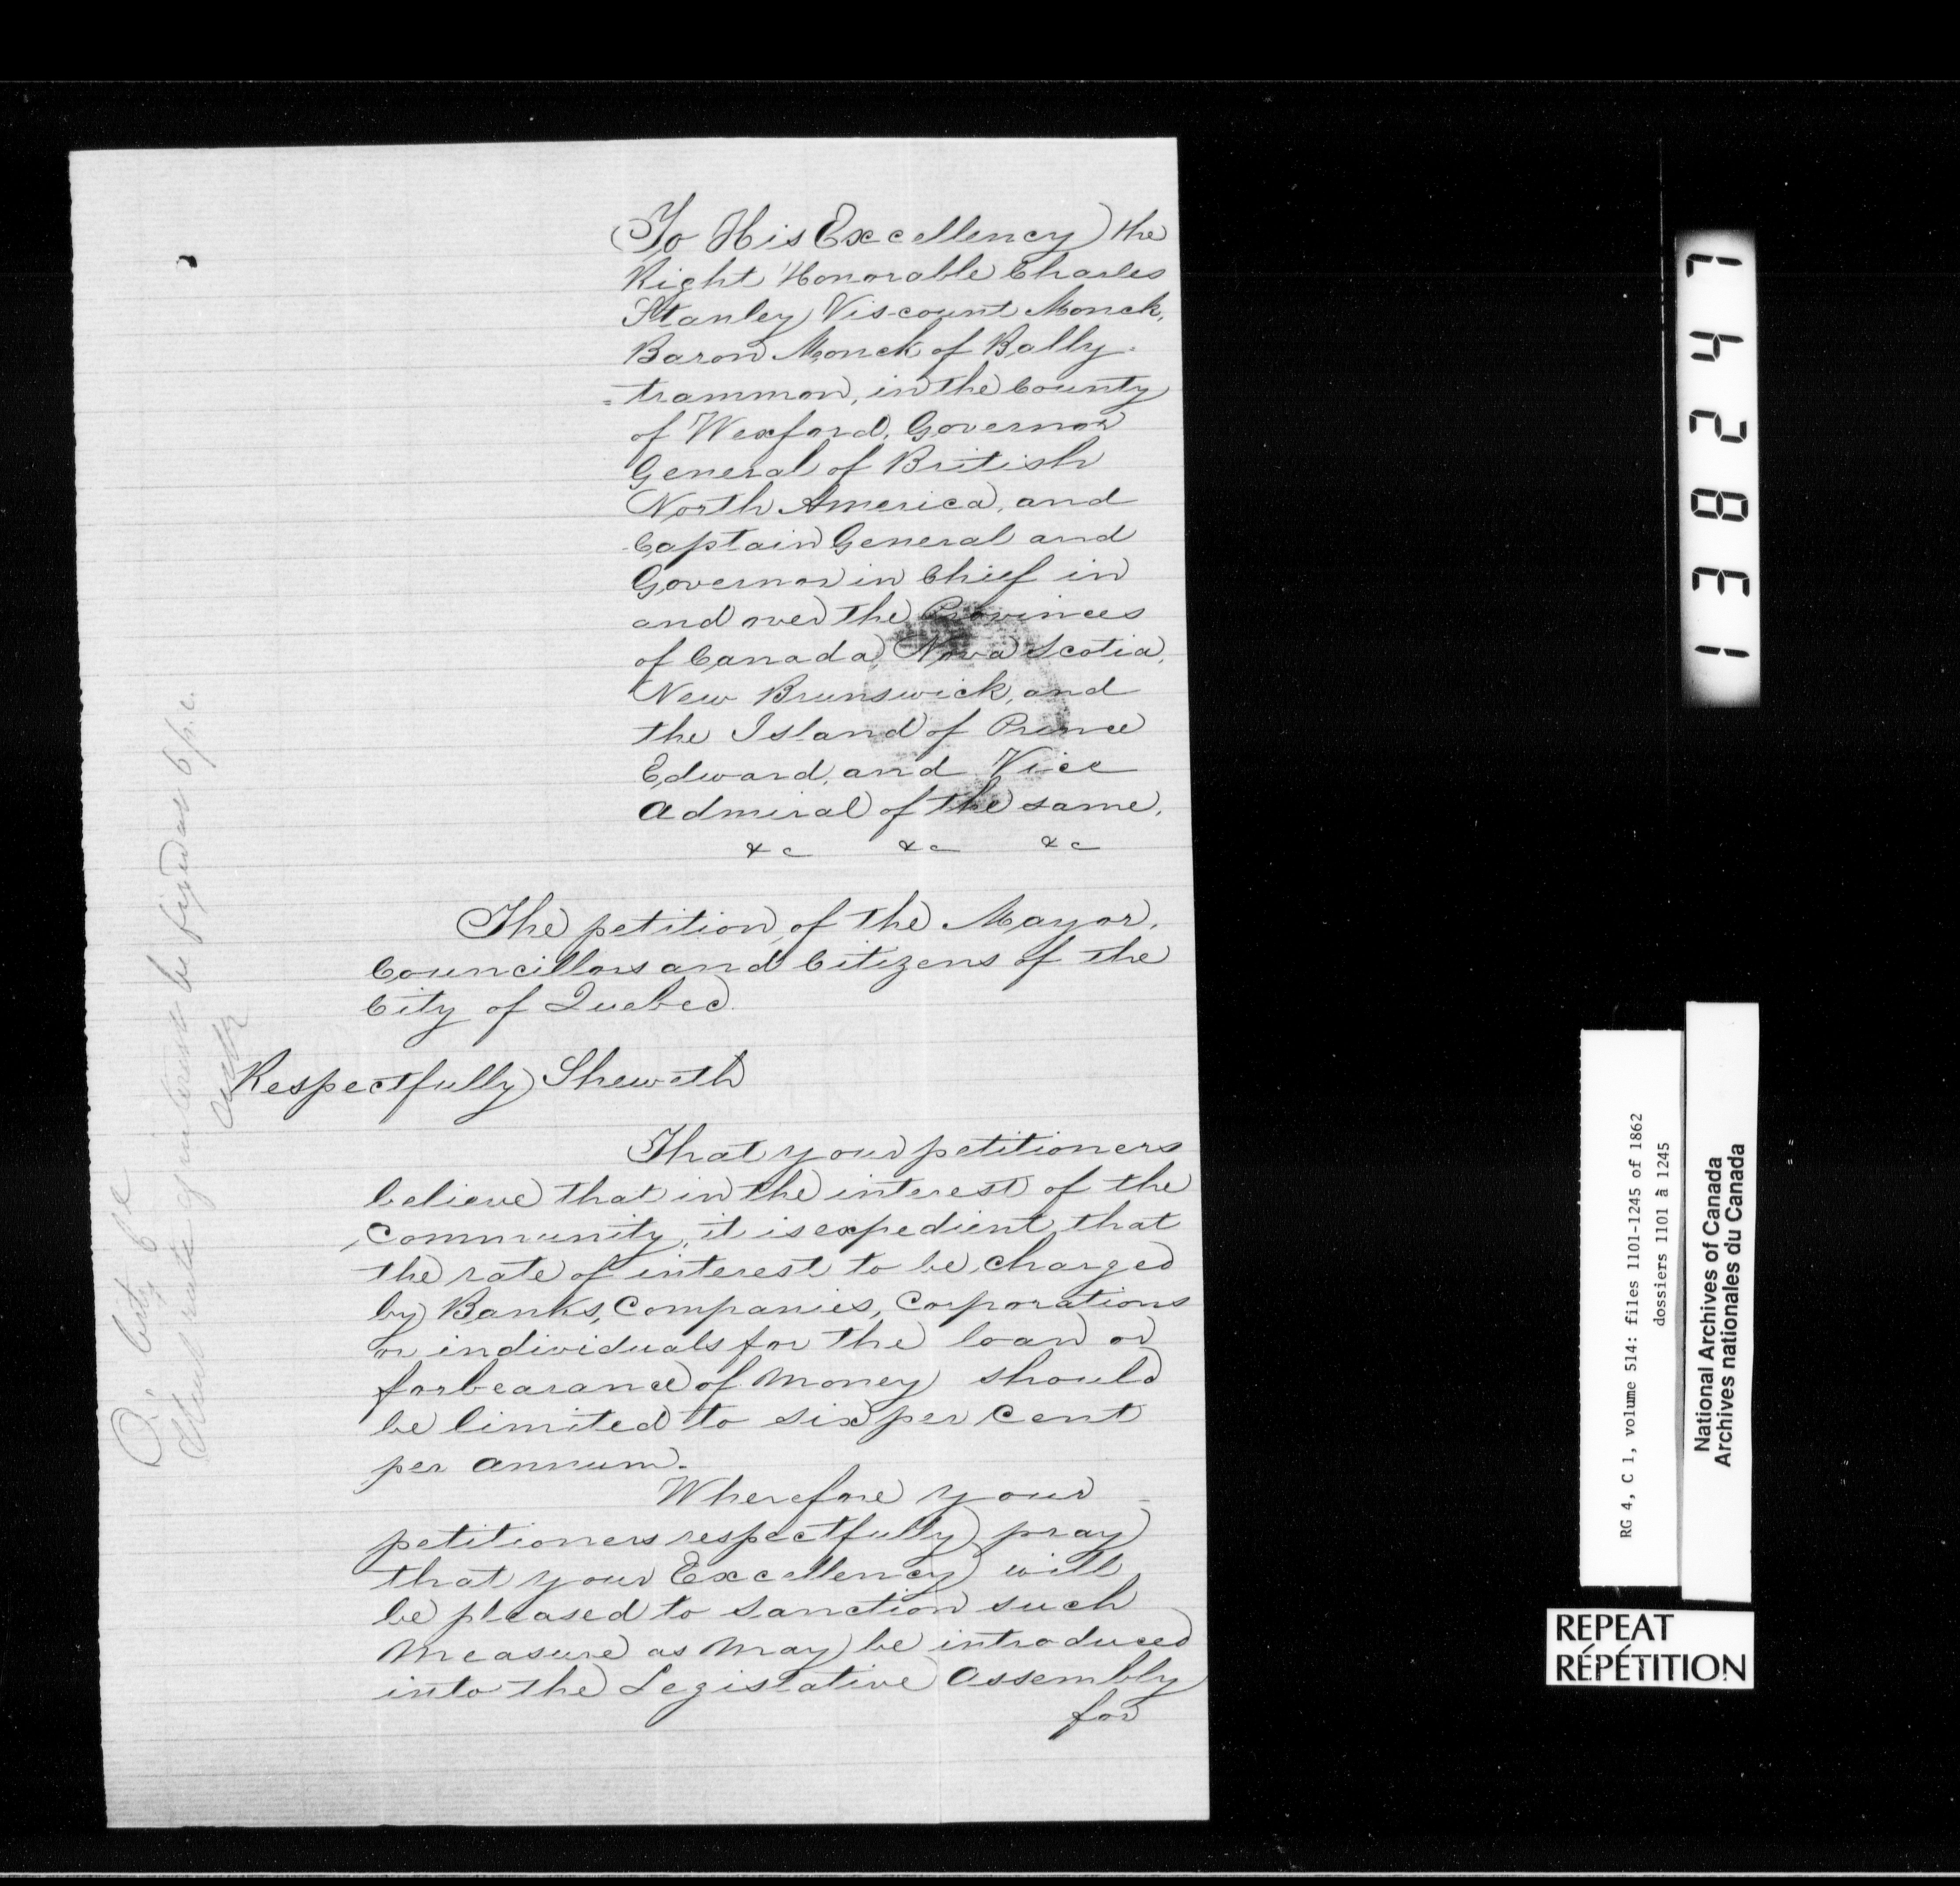 To His Excellency the
Right Honorable Charles
Stanley Viscount Monck,
Baron Monck of Bally-
=trammon, in the County
of Wexford, Governor
General of British
North America, and
Captain General and
Governor in Chief in
and over the Provinces
of Canada, Nova Scotia,
New Brunswick, and
the Island of Prince
Edward, and Vice
Admiral of the same,
&c &c &c
The petition of the Mayor,
Councillors and Citizens of the
City of Quebec.
Respectfully Sheweth
That your petitioners
believe that in the interest of the
Community, it is expedient that
the rate of interest to be charged
by Banks, Companies, Corporations
or individuals for the loan or
forbearance of Money should
be limited to six per Cent
per annum.
Wherefore your
petitioners respectfully pray
that your Excellency will
be pleased to sanction such
Measure as may be introduced
into the Legislative Assembly
for
rate of interest be fixed at 6 p.c.
138247
RG 4, C 1, volume 514: files 1101-1245 of 1862
dossiers 1101 à 1245
National Archives of Canada
Archives nationales du Canada
REPEAT
RÉPÉTITION